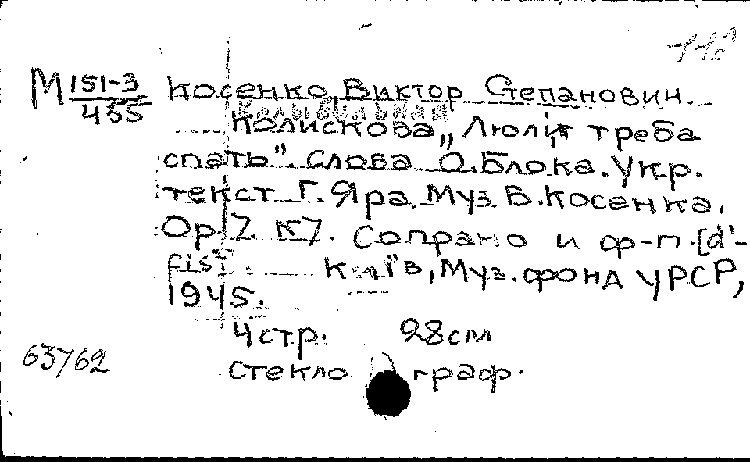 М 151-3/435 Косенко, Виктор Степанович.
Колискова „Люлі, треба
спать". Слова О.Блока. Укр.
текст Г. Яра. Муз. В. Косенка.
Ор. 7. К7. Сопрано и ф-п. [d'-
fis"]. Київ, Муз. фонд УРСР,
1945.
4 стр. 28 см
63762
стекло граф.